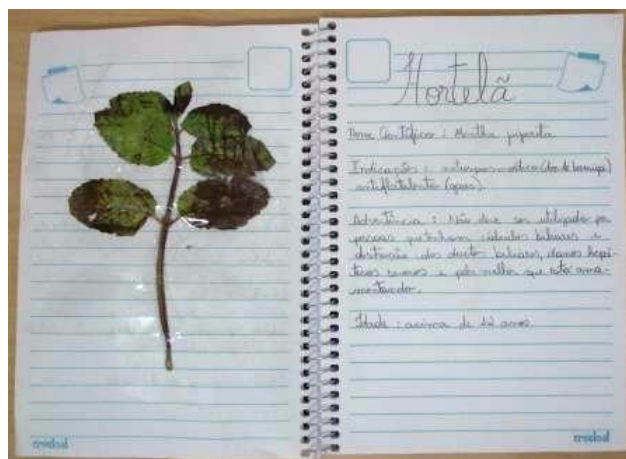 Hortelã
Nome Científico: Mentha piperita
Indicações: antiespasmódico (dor de barriga)
antiflatulento (gases).
Advertência: Não deve ser utilizado por
pessoas que tenham cálculos biliares e
obstrução dos ductos biliares, danos hepá-
ticos severos e pela mulher que está ama-
mentando.
Idade: acima de 12 anos
credeal
credeal